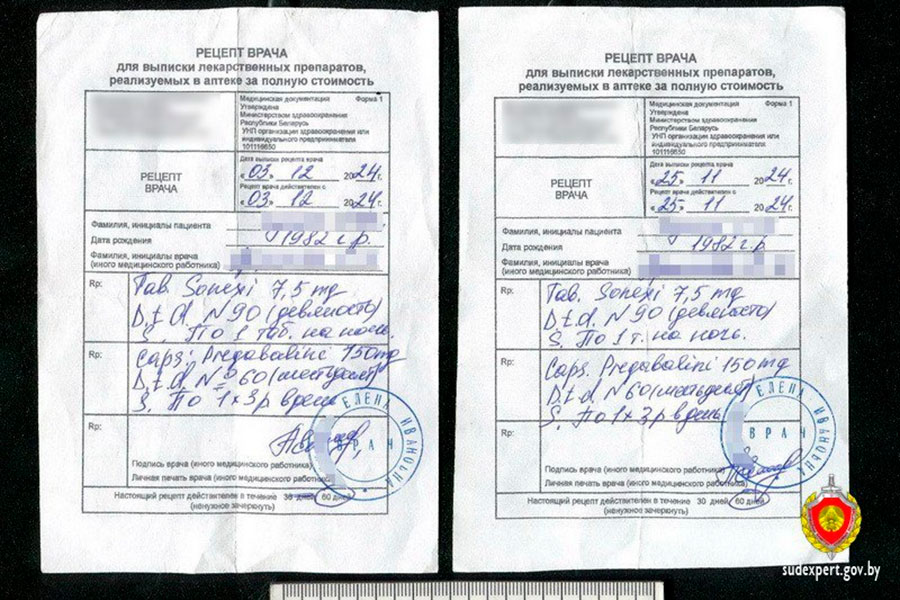 РЕЦЕПТ ВРАЧА
для выписки лекарственных препаратов,
реализуемых в аптеке за полную стоимость
Медицинская документация Форма 1
Утверждена
Министерством здравоохранения
Республики Беларусь
УНП организации здравоохранения или
индивидуального предпринимателя
101116650
РЕЦЕПТ
ВРАЧА
Дата выписки рецепта врача
«03» 12 2024г.
Рецепт врача действителен с
«03» 12 2024г.
Фамилия, инициалы пациента
Дата рождения 1982 г.р.
Фамилия, инициалы врача
(иного медицинского работника)
Rp: Tab. Sonexi 7,5 mg
D.t.d. N 90 (девяносто)
S. По 1 таб. на ночь.
Rp: Caps. Pregabalini 150mg
D.t.d. № 60 (шестьдесят)
S. По 1 х 3 р в день
Rp:
Подпись врача (иного медицинского работника)
Личная печать врача (иного медицинского работника)
ЕЛЕНА ИВАНОВНА
ВРАЧ
Настоящий рецепт действителен в течение 30 дней, 60 дней
(ненужное зачеркнуть)
РЕЦЕПТ ВРАЧА
для выписки лекарственных препаратов,
реализуемых в аптеке за полную стоимость
Медицинская документация Форма 1
Утверждена
Министерством здравоохранения
Республики Беларусь
УНП организации здравоохранения или
индивидуального предпринимателя
101116650
РЕЦЕПТ
ВРАЧА
Дата выписки рецепта врача
«25» 11 2024г.
Рецепт врача действителен с
«25» 11 2024г.
Фамилия, инициалы пациента
Дата рождения 1982 г.р.
Фамилия, инициалы врача
(иного медицинского работника)
Rp: Tab. Sonexi 7,5 mg
D.t.d. N 90 (девяносто)
S. По 1 т. на ночь.
Rp: Caps. Pregabalini 150mg
D.t.d. N 60 (шестьдесят)
S. По 1 х 3 р в день
Rp:
Подпись врача (иного медицинского работника)
Личная печать врача (иного медицинского работника)
ЕЛЕНА ИВАНОВНА
ВРАЧ
Настоящий рецепт действителен в течение 30 дней, 60 дней
(ненужное зачеркнуть)
sudexpert.gov.by